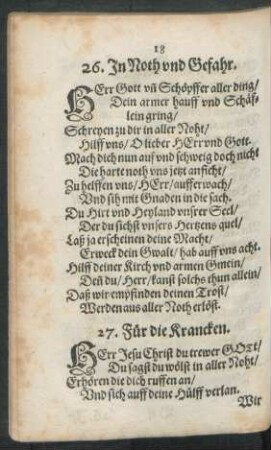 18
26. In Noth vnd Gefahr.
HErr Gott vñ Schöpffer aller ding/
Dein armer hauff vnd Schäf-
lein gring/
Schreyen zu dir in aller Noht/
Hilff vns/ O lieber HErr vnd Gott.
Mach dich nun auf vnd schweig doch nicht
Die harte noth vns jetzt anficht/
Zu helffen vns/ HErr/ aufferwach/
Vnd sih mit Gnaden in die sach.
Du Hirt vnd Heyland vnsrer Seel/
Der du sichst vnsers Hertzens quel/
Laß ja erscheinen deine Macht/
Erweck dein Gwalt/ hab auff vns acht.
Hilff deiner Kirch vnd armen Gmein/
Deñ du/ Herr/ kanst solchs thun allein/
Daß wir empfinden deinen Trost/
Werden aus aller Noht erlöst.
27. Für die Krancken.
HErr Jesu Christ du trewer GOtt/
Du sagst du wölst in aller Noht/
Erhören die dich ruffen an/
Vnd sich auff deine Hülff verlan.
Wir